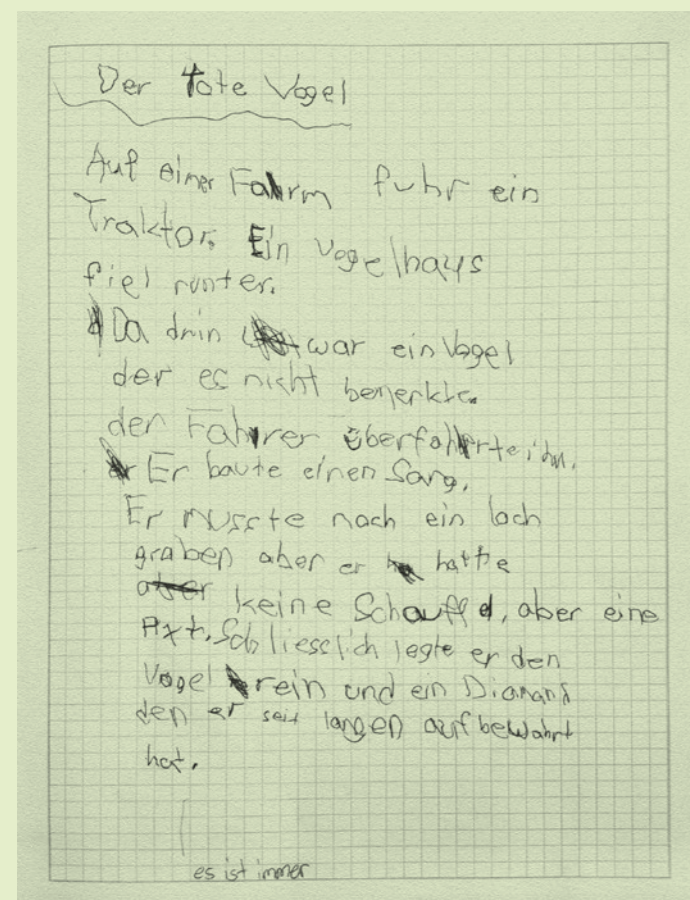 Der tote Vogel
Auf einer Fahrm fuhr ein
Traktor. Ein Vogelhaus
fiel runter.
Da drin war ein Vogel
der es nicht bemerkte.
der Fahrer überfahrte ihn.
Er baute einen Sarg.
Er musste noch ein loch
graben aber er hatte
keine Schauffel, aber eine
Axt. Schliesslich legte er den
Vogel rein und ein Diamant
den er seit langen aufbewahrt
hat.
es ist immer